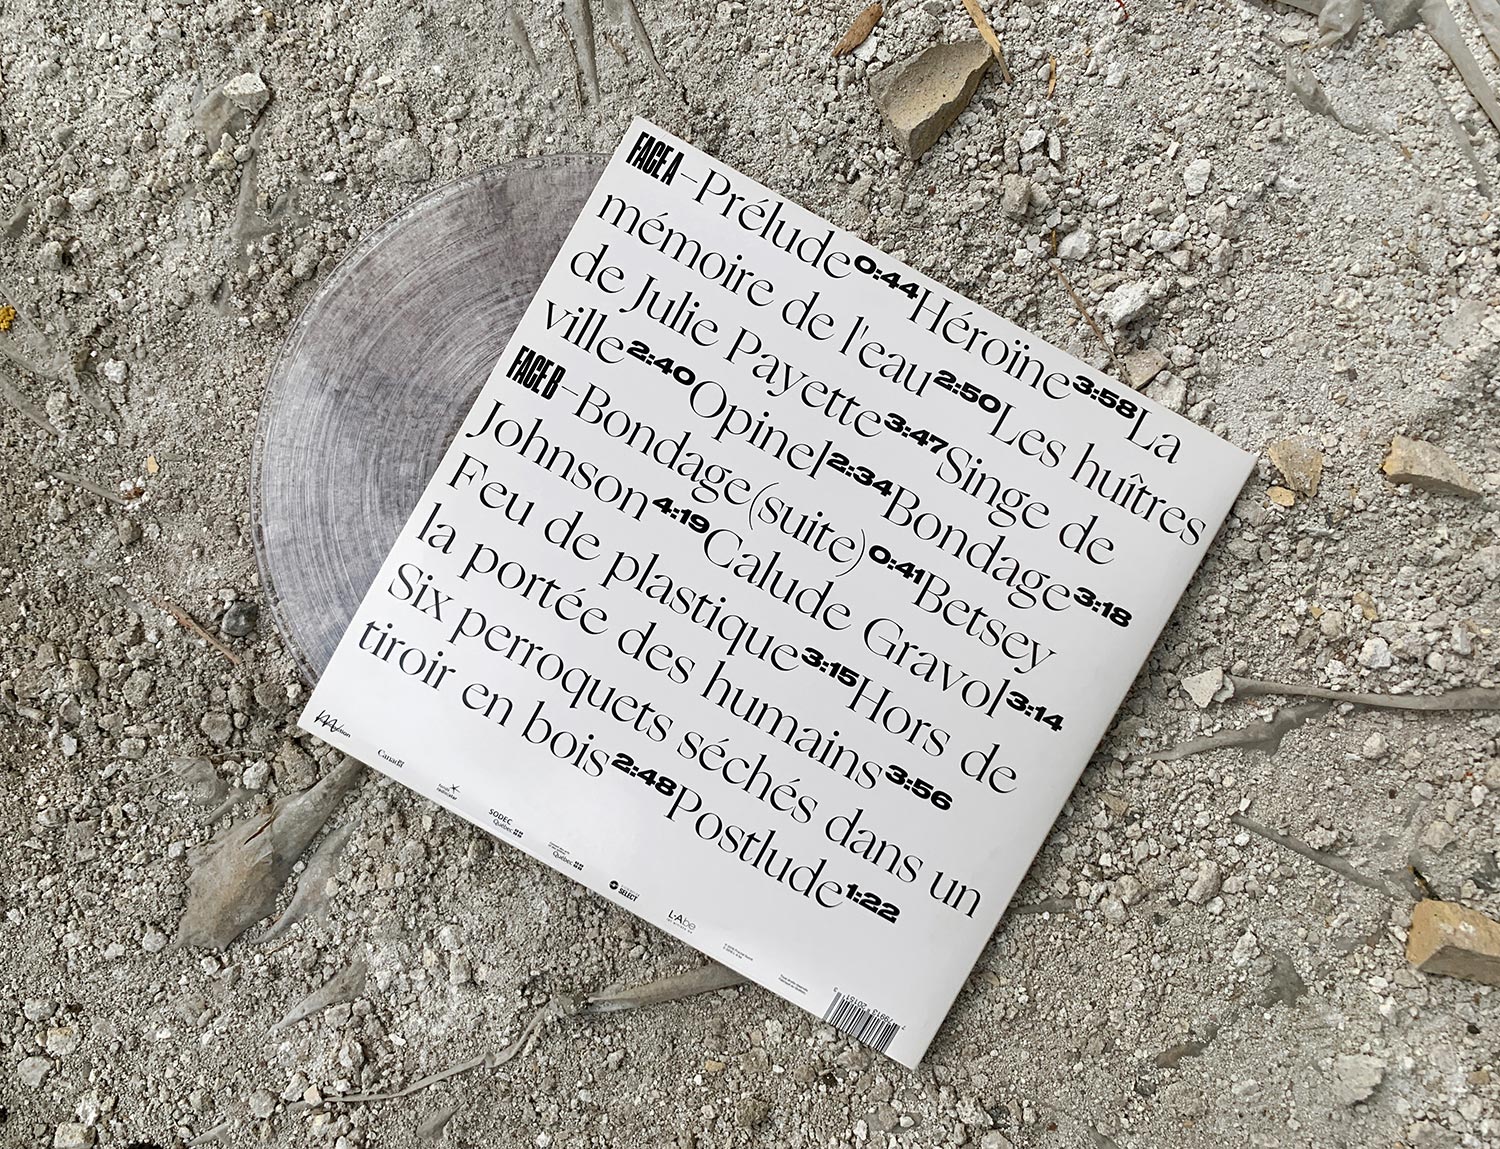 FACE A–Prélude0:44Héroïne3:58La
mémoire de l'eau2:50Les huîtres
de Julie Payette3:47Singe de
ville2:40Opinel2:34Bondage3:18
FACE B–Bondage(suite)0:41Betsey
Johnson4:19Calude Gravol3:14
Feu de plastique3:15Hors de
la portée des humains3:56
Six perroquets séchés dans un
tiroir en bois2:48Postlude1:22
Canada
SODEC
Québec
Québec
SELECT
L-Abe